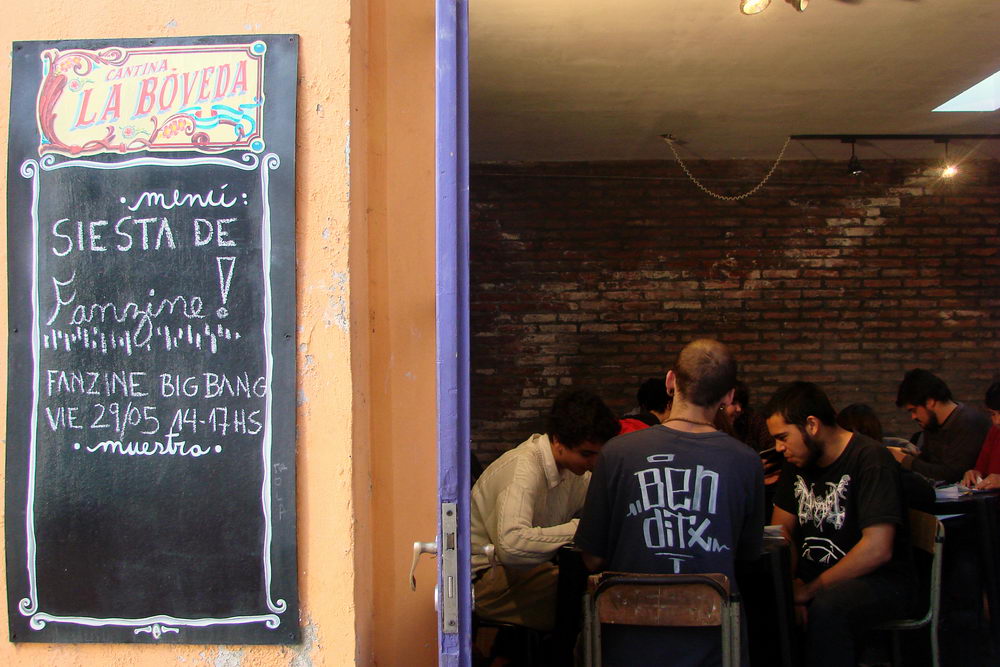 CANTINA
LA BÓVEDA
menú:
SIESTA DE
Fanzine!
FANZINE BIG BANG
VIE 29/05 14-17HS
muestra
BEN
ditx